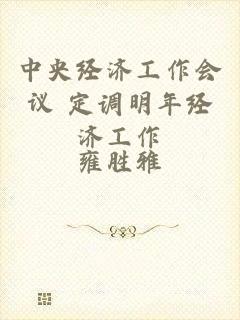 中央经济工作会
议 定调明年经
济工作
雍胜雅